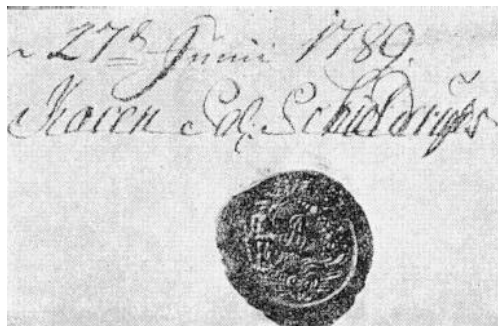 27d Junii 1789.
Karen Sal. Schielderups